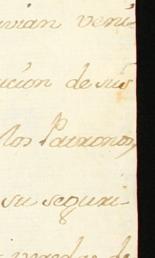 vivian veni-
ucion de sus
los Patronos,
su seguri-